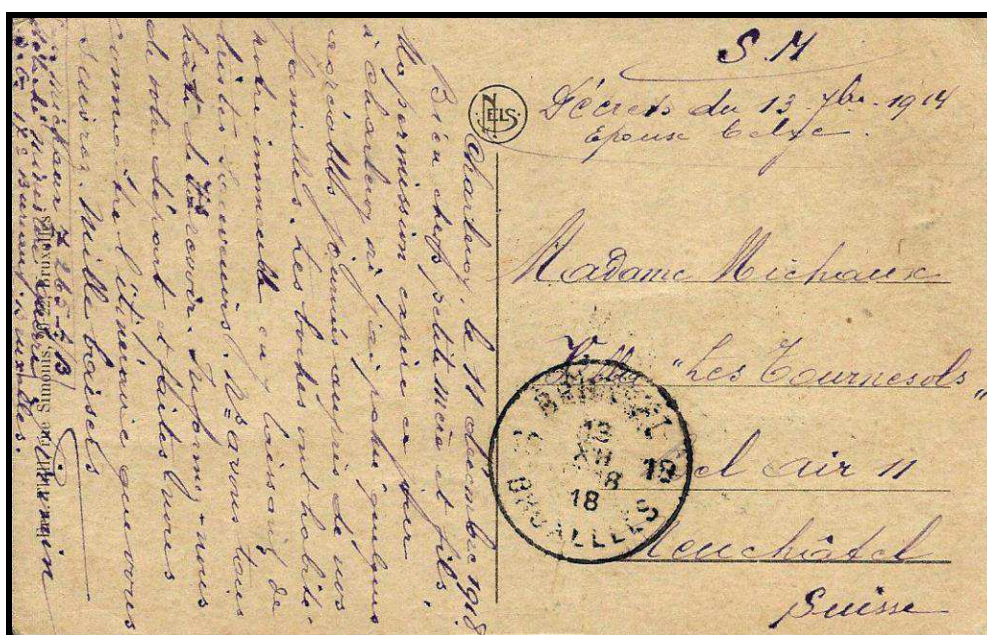 S.M
Décrets du 13 7bre 1914
Epouse belge
NELS
Madame Michaux
Villa "Les Tournesols"
Bel Air 11
Neuchâtel
Suisse
BRUSSEL
18
XII
18
18
19
BRUXELLES
Charleroi, le 11 décembre 1918
Bien chers petite mère et fils,
Ma permission expire ce jour
à Charleroi où j'ai passé quelques
agréables journées auprès de nos
familles. Les boches ont habité
notre immeuble en y laissant de
tristes saveurs. Ns avons tous
hâte de vs recevoir. Informez-nous
de votre départ et faites nous
connaître l'itinéraire que vous
suivrez. Mille baisers
Firmin
Michaux Z 265
17e Bureau, Bruxelles.